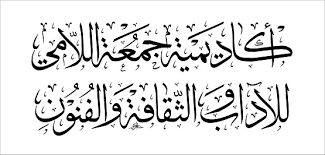 أكاديمية جمعة اللامي
للآداب والثقافة والفنون